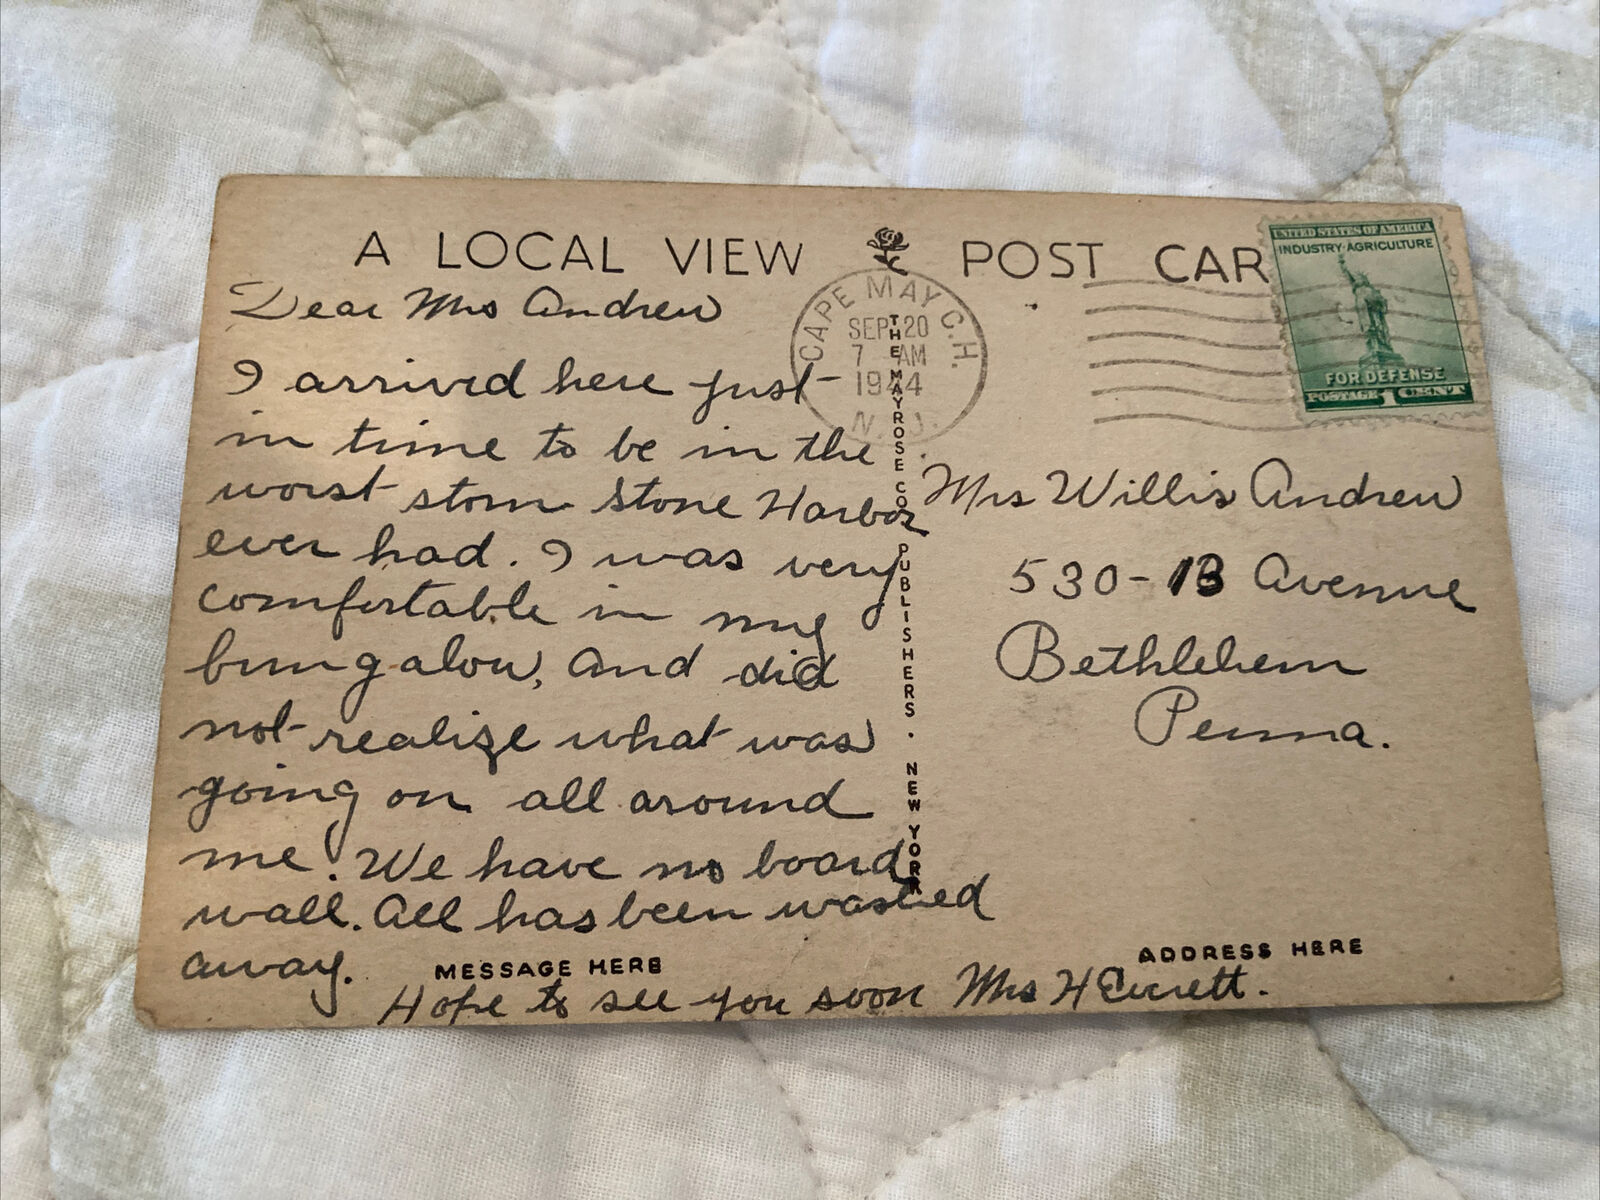 A LOCAL VIEW POST CAR
Dear Mrs Andrew
I arrived here just
in time to be in the
worst storm Stone Harbor
ever had. I was very
comfortable in my
bungalow, and did
not realize what was
going on all around
me. We have no board
wall. All has been washed
away.
MESSAGE HERE
Hope to see you soon Mrs H Everett.
THE MAYROSE CO. PUBLISHERS. NEW YORK
CAPE MAY C.H.
SEP 20
7 AM
1944
N.J.
UNITED STATES OF AMERICA
INDUSTRY·AGRICULTURE
FOR DEFENSE
POSTAGE 1 CENT
Mrs Willis Andrew
530-13 Avenue
Bethlehem
Penna.
ADDRESS HERE